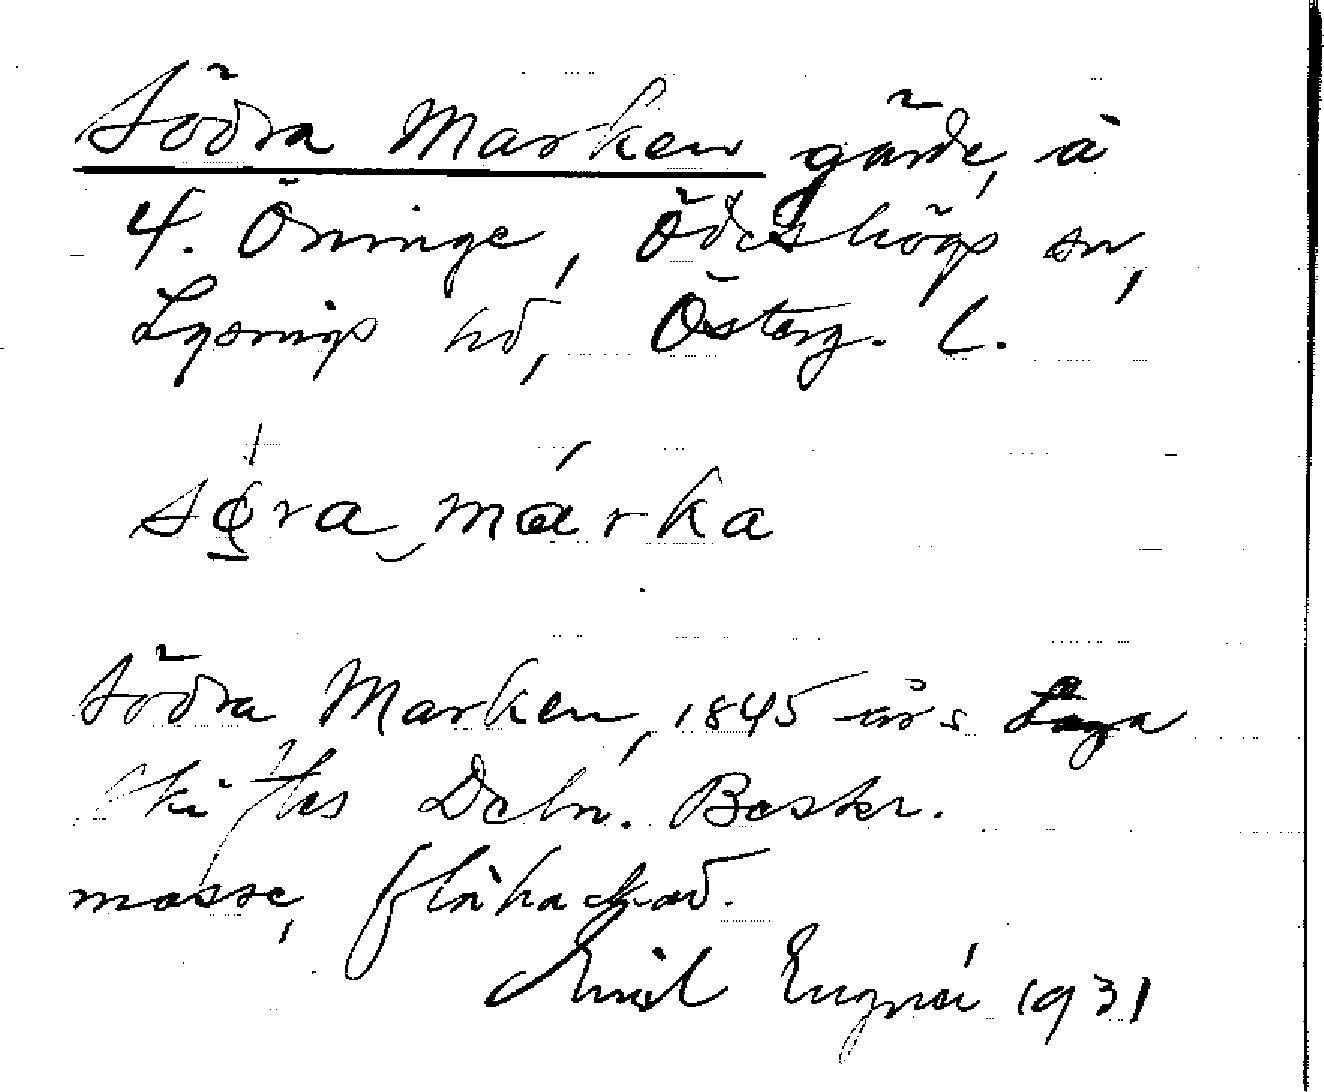 Södra Marken gärde, å
4. Öninge, Ödeshögs sn,
Lysings hd, Österg. L.
sø̱ra‿márka
Södra Marken, 1845 års Laga
Skiftes Deln. Beskr.
mosse, flåhackad.
Emil
1931